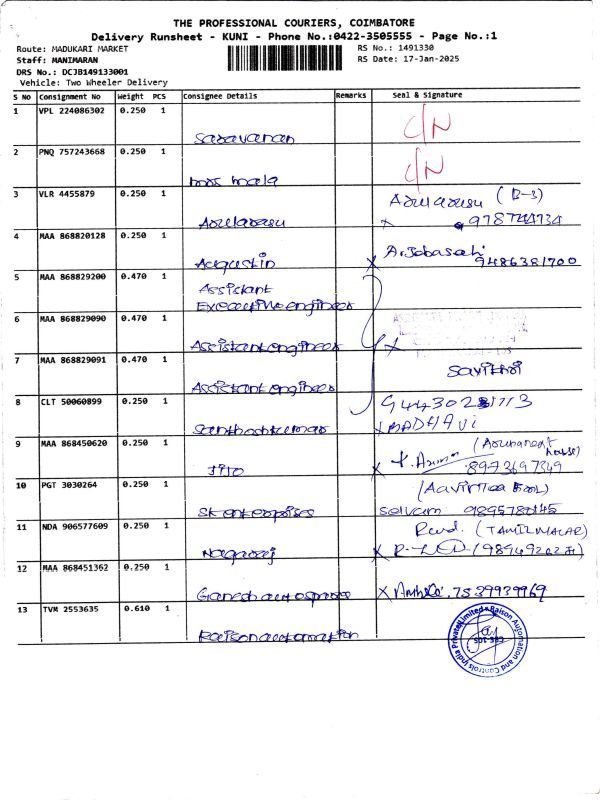 THE PROFESSIONAL COURIERS, COIMBATORE
Delivery Runsheet - KUNI - Phone No.:0422-3505555 - Page No.:1
Route: MADUKARI MARKET
RS No.: 1491330
Staff: MANIMARAN
RS Date: 17-Jan-2025
DRS No.: DCJB149133001
Vehicle: Two Wheeler Delivery
S No Consignment No Weight PCS Consignee Details Remarks Seal & Signature
1 VPL 224086302 0.250 1
Saravanan C/N
2 PNQ 757243668 0.250 1
mala C/N
3 VLR 4455879 0.250 1
Arularasu Arularasu (B-3)
X
4 MAA 868820128 0.250 1
Augustin X 9486381700
5 MAA 868829200 0.470 1
Assistant
Executive engineer
6 MAA 868829090 0.470 1
Assistant engineer X
7 MAA 868829091 0.470 1
Assistant engineer Savithri
8 CLT 50060899 0.250 1
Santhoshkumar
9 MAA 868450620 0.250 1
Jito X 8973697349
10 PGT 3030264 0.250 1
SK enterprises Selvam
11 NDA 906577609 0.250 1
Nagaraj (TAMILMALAR)
X
12 MAA 868451362 0.250 1
Ganesh auto spares X 7539939969
13 TVM 2553635 0.610 1
Raison automation
Raison Automation and Controls India Private Limited